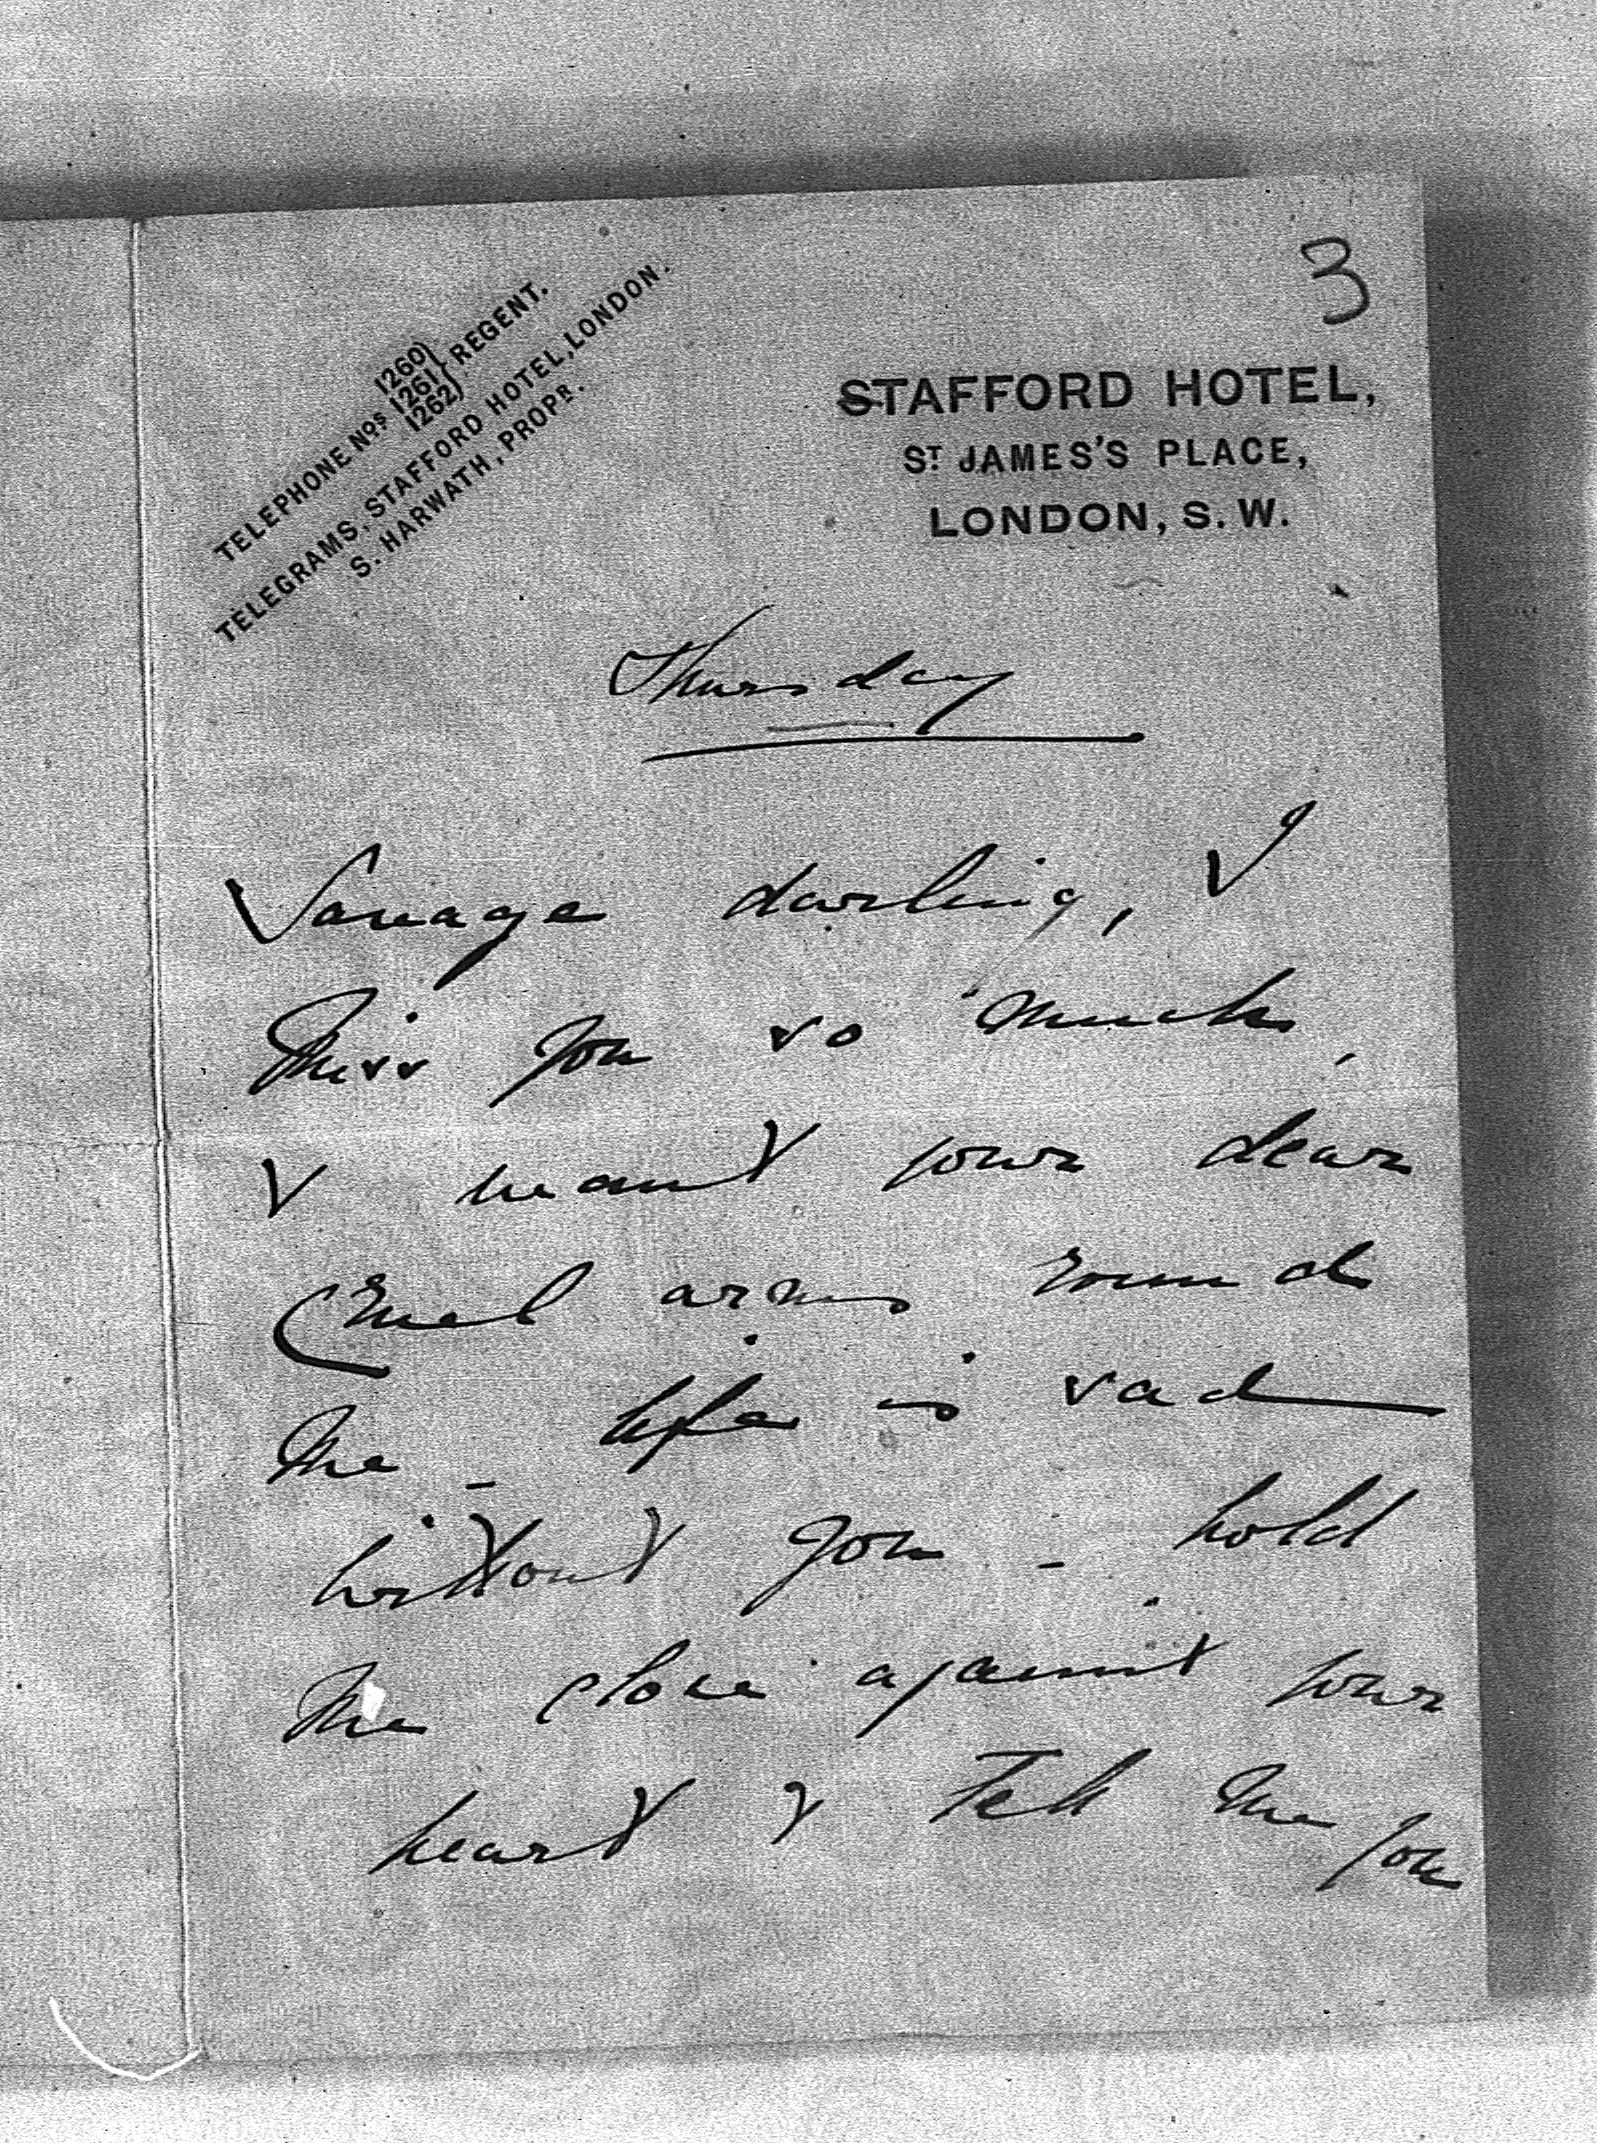 3
TELEPHONE Nos 1260 1261 1262 } REGENT.
TELEGRAMS, STAFFORD HOTEL, LONDON.
S. HARWATH, PROPR.
STAFFORD HOTEL,
ST JAMES'S PLACE,
LONDON, S.W.
Thursday
Savage darling, I
miss you so much,
I want your dear
cruel arms round
me - life is sad
without you - hold
me close against your
heart & tell me you